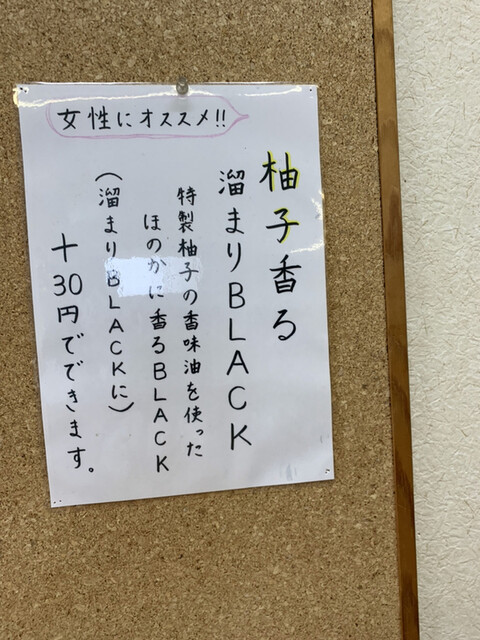 女性にオススメ!!
柚子香る
溜まりBLACK
特製柚子の香味油を使った
ほのかに香るBLACK
(溜まりBLACKに)
+30円でできます。